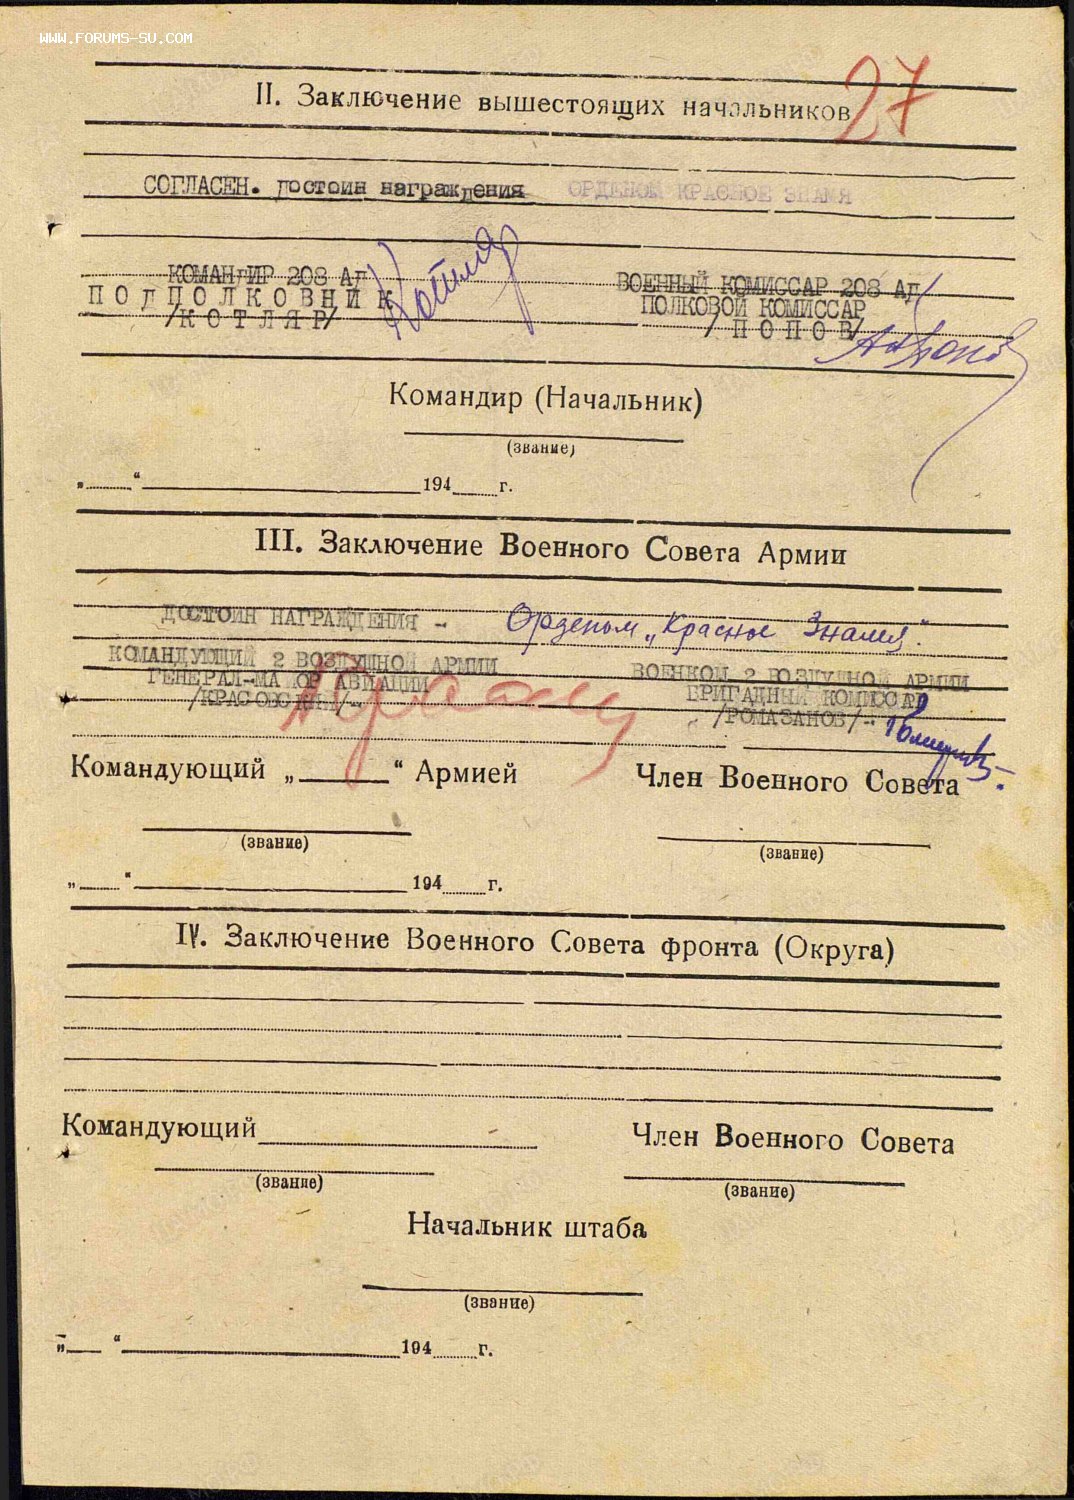 WWW.FORUMS-SU.COM
27
II. Заключение вышестоящих начальников
СОГЛАСЕН. достоин награждения ОРДЕНОМ КРАСНОЕ ЗНАМЯ
КОМАНДИР 208 АД
ПОДПОЛКОВНИК
/КОТЛЯР/
Котляр
ВОЕННЫЙ КОМИССАР 208 АД
ПОЛКОВОЙ КОМИССАР
/ПОПОВ/
Командир (Начальник)
(звание)
„ “ 194 г.
III. Заключение Военного Совета Армии
ДОСТОИН НАГРАЖДЕНИЯ - Орденом „Красное Знамя".
КОМАНДУЮЩИЙ 2 ВОЗДУШНОЙ АРМИИ
ГЕНЕРАЛ-МАЙОР АВИАЦИИ
/КРАСОВСКИЙ/-
ВОЕНКОМ 2 ВОЗДУШНОЙ АРМИИ
БРИГАДНЫЙ КОМИССАР
/РОМАЗАНОВ/-
Командующий „ “ Армией
Член Военного Совета
(звание)
(звание)
„ “ 194 г.
IV. Заключение Военного Совета фронта (Округа)
Командующий
Член Военного Совета
(звание)
(звание)
Начальник штаба
(звание)
„ “ 194 г.